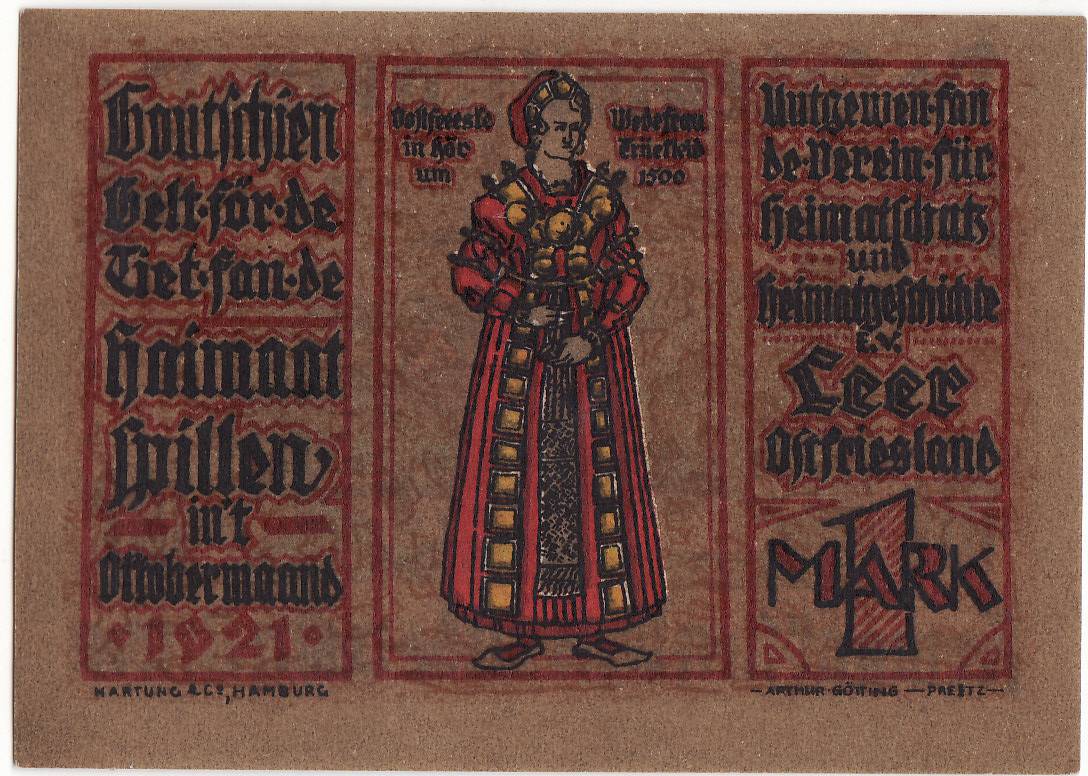 Goutschien
Gelt·för·de
Tiet·fan·de
Haimaat
spillen
in't
Oktobermaand
·1921·
in hör
um
1500
Uutgewen·fan
de·Verein·für
Heimatschutz
und
Heimatgeschichte
E.V.
Leer
Ostfriesland
1
MARK
HARTUNG & Co, HAMBURG
— ARTHUR·GÖTTING — PREETZ —